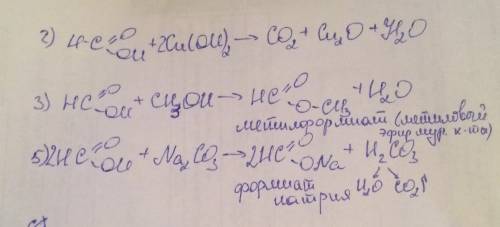 2) H-C=O OH + 2Cu(OH)2 → CO2 + Cu2O + H2O
3) HC=O OH + CH3OH → HC=O O-CH3 + H2O
метилформиат (метиловый
эфир мур. к-ты)
5) 2HC=O OH + Na2CO3 → 2HC=O ONa + H2CO3
формиат
натрия
H2O CO2↑